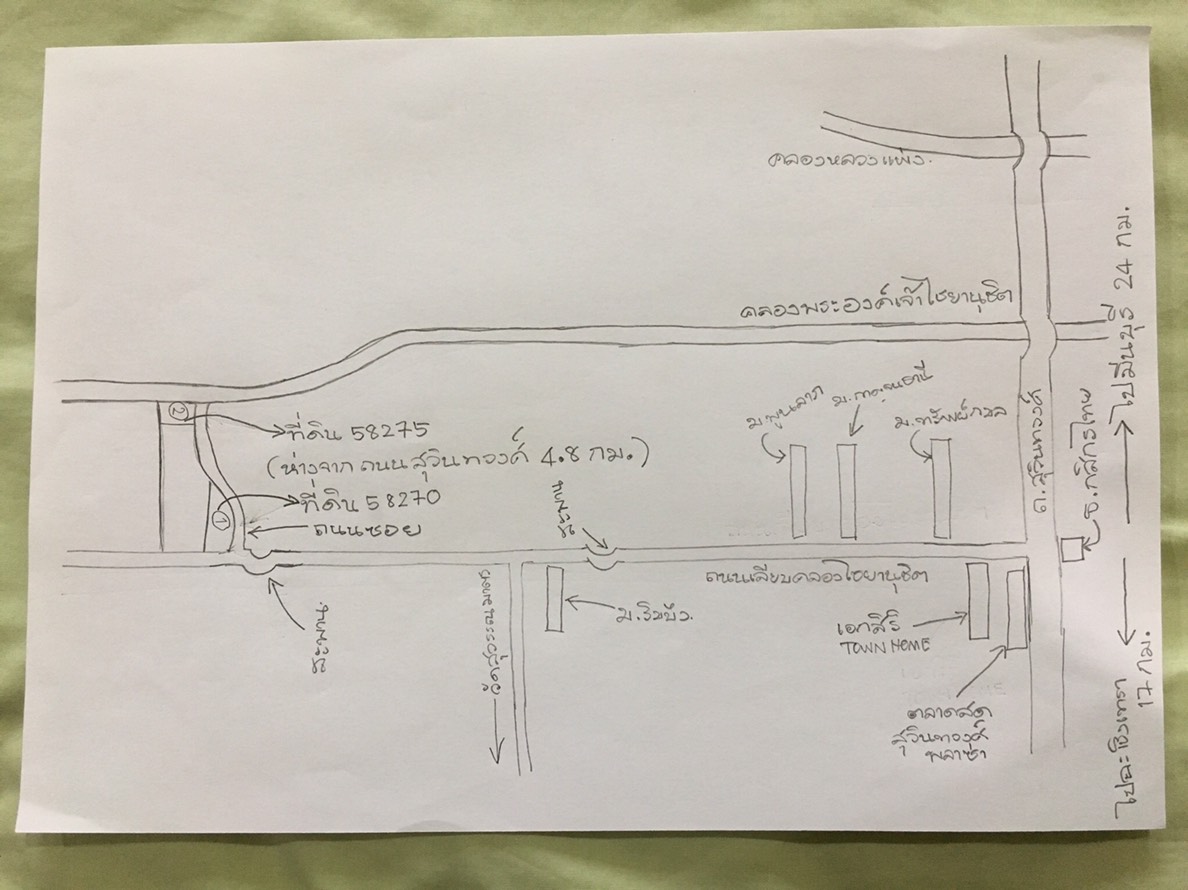 คลองหลวงแพ่ง.
คลองพระองค์เจ้าไชยานุชิต
ไปมีนบุรี 24 กม.
ม.พูนลาภ
ม.ทรัพย์กมล
ถ.สุวินทวงศ์
ธ.กสิกรไทย
②
ที่ดิน 58275
(ห่างจาก ถนนสุวินทวงศ์ 4.8 กม.)
①
ที่ดิน 58270
ถนนซอย
สะพาน
ถนนเลียบคลองไชยานุชิต
ม.ริมบึง.
เอกสิริ
TOWN HOME
สะพาน
ตลาดสด
สุวินทวงศ์
พลาซ่า
ไปฉะเชิงเทรา
17 กม.